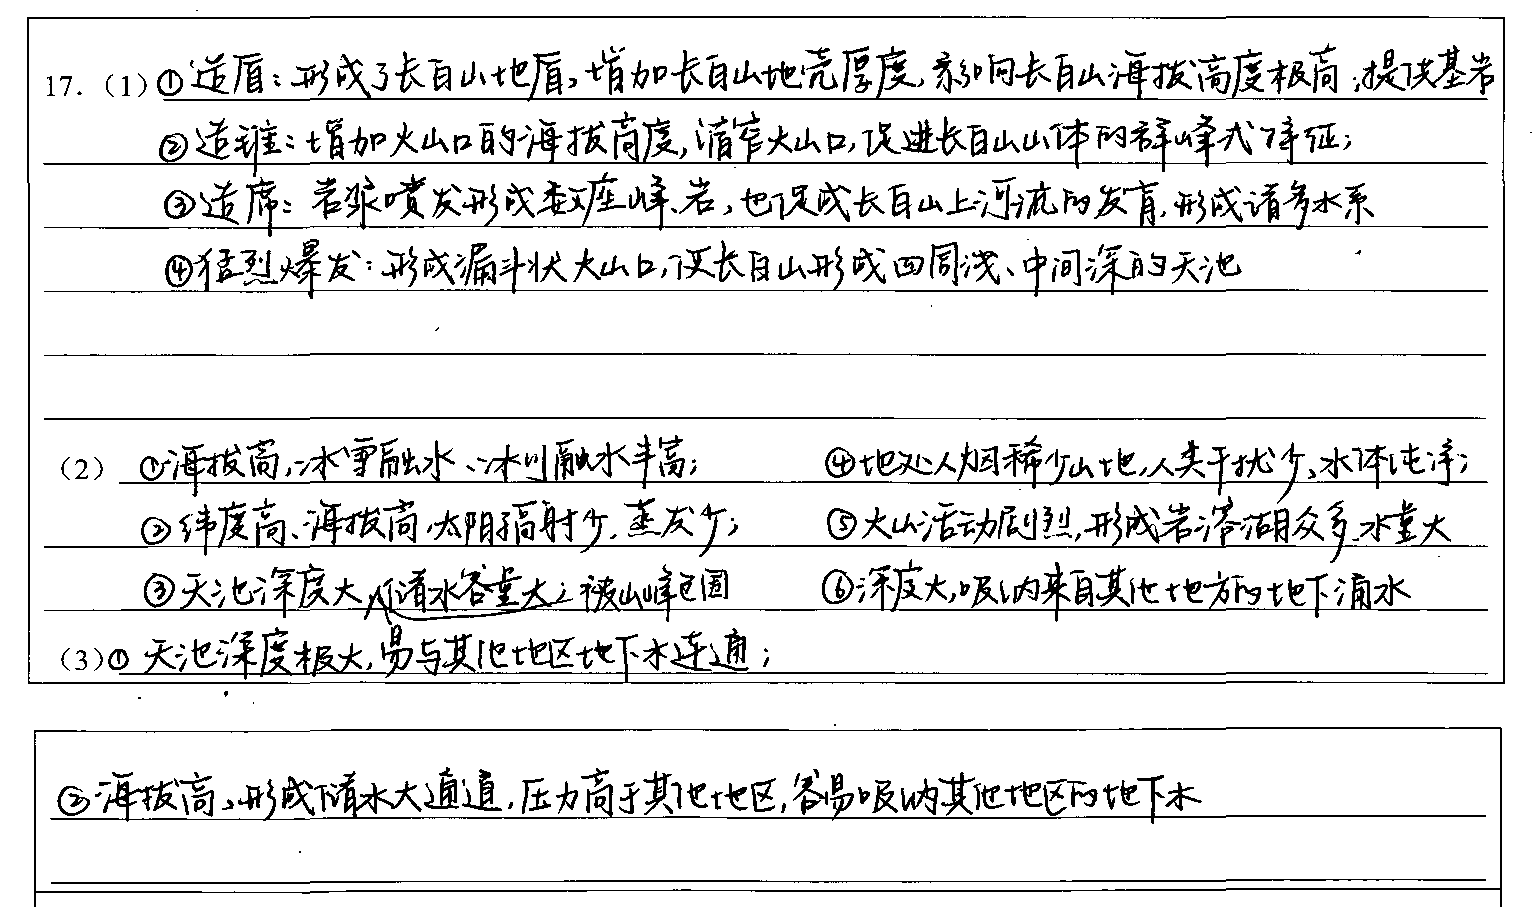 17.（1）①造盾：形成了长白山地盾，增加长白山地壳厚度，影响长白山海拔高度极高；提供基岩
②造锥：增加火山口的海拔高度，缩窄火山口，促进长白山山体的群峰式特征；
③造席：岩浆喷发形成数座峰岩，也促成长白山上河流的发育，形成诸多水系
④猛烈爆发：形成漏斗状火山口，使长白山形成四周浅、中间深的天池
（2）①海拔高，冰雪融水、冰川融水丰富； ④地处人烟稀少山地，人类干扰少，水体纯净；
②纬度高、海拔高，太阳辐射少，蒸发少； ⑤火山活动剧烈，形成岩溶湖众多，水量大
③天池深度大，储水容量大；被山峰包围 ⑥深度大，吸纳来自其他地方的地下涌水
（3）①天池深度极大，易与其他地区地下水连通；
②海拔高，形成储水大通道，压力高于其他地区，容易吸纳其他地区的地下水